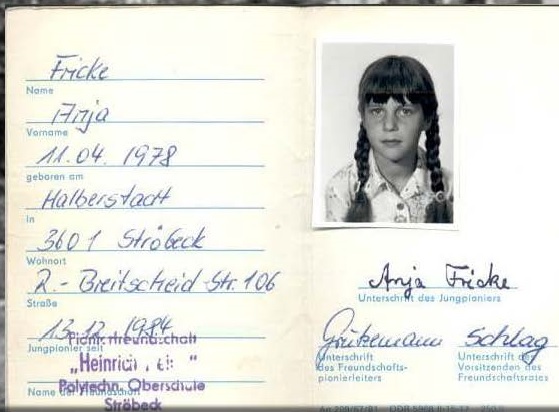 Fricke
Name
Anja
Vorname
11.04.1978
geboren am
Halberstadt
in
3601 Ströbeck
Wohnort
R.-Breitscheid-Str. 106
Straße
13.12.1984
Jungpionier seit
Pionierfreundschaft
„Heinrich "
Name der Freundschaft
Polytechn. Oberschule
Ströbeck
Anja Fricke
Unterschrift des Jungpioniers
Schlag
Unterschrift
des Freundschafts-
pionierleiters
Unterschrift des
Vorsitzenden des
Freundschaftsrates